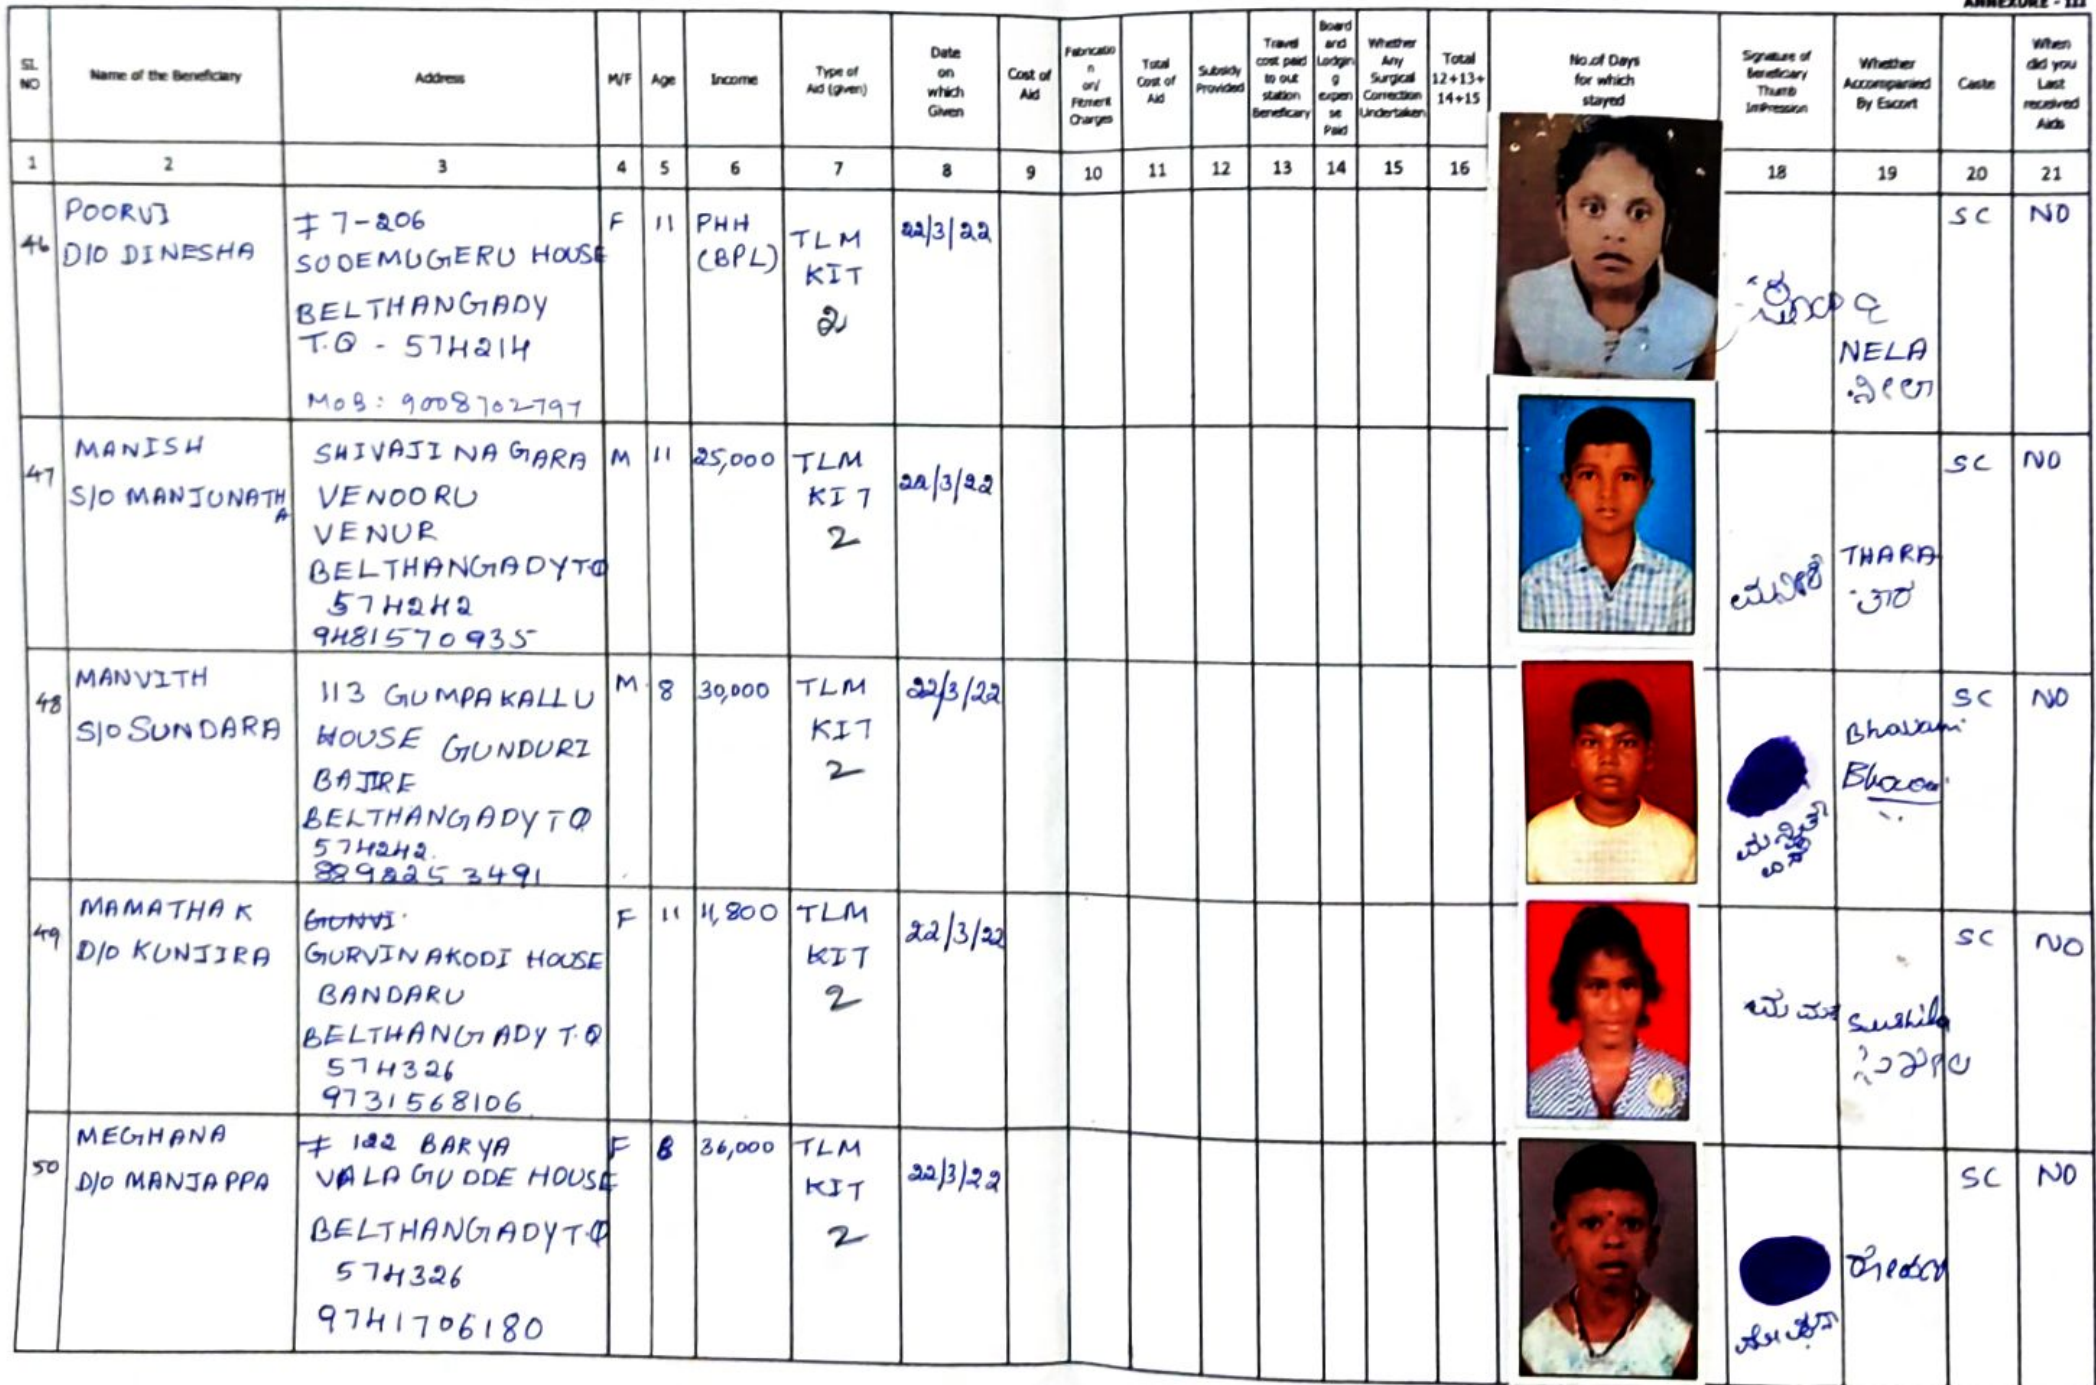 ANNEXURE - III
SL NO
Name of the Beneficiary
Address
M/F
Age
Income
Type of Aid (given)
Date on which Given
Cost of Aid
Fabrication on/ Fitment Charges
Total Cost of Aid
Subsidy Provided
Travel cost paid to out station Beneficiary
Board and Lodging expense Paid
Whether Any Surgical Correction Undertaken
Total 12+13+14+15
No.of Days for which stayed
Signature of Beneficiary Thumb Impression
Whether Accompanied By Escort
Caste
When did you Last received Aids
1 2 3 4 5 6 7 8 9 10 11 12 13 14 15 16 18 19 20 21
46
POORVI
D/O DINESHA
# 7-206
SODEMUGERU HOUSE
BELTHANGADY
T.Q - 574214
MOB: 9008702797
F
11
PHH
(BPL)
TLM
KIT
2
22/3/22
NELA
ನೀಲಾ
SC
NO
47
MANISH
S/O MANJUNATHA
SHIVAJI NAGARA
VENOORU
VENUR
BELTHANGADY TQ
574242
9481570935
M
11
25,000
TLM
KIT
2
22/3/22
THARA
ತಾರ
SC
NO
48
MANVITH
S/O SUNDARA
113 GUMPAKALLU
HOUSE GUNDURI
BAJIRE
BELTHANGADY TQ
574242.
M
8
30,000
TLM
KIT
2
22/3/22
Bhavani
SC
NO
49
MAMATHA K
D/O KUNJIRA
GURVINAKODI HOUSE
BANDARU
BELTHANGADY T.Q
574326
9731568106
F
11
11,800
TLM
KIT
2
22/3/22
ಮಮತ
Sushila
SC
NO
50
MEGHANA
D/O MANJAPPA
# 122 BARYA
VALAGUDDE HOUSE
BELTHANGADY T.Q
574326
9741706180
F
8
36,000
TLM
KIT
2
22/3/22
SC
NO